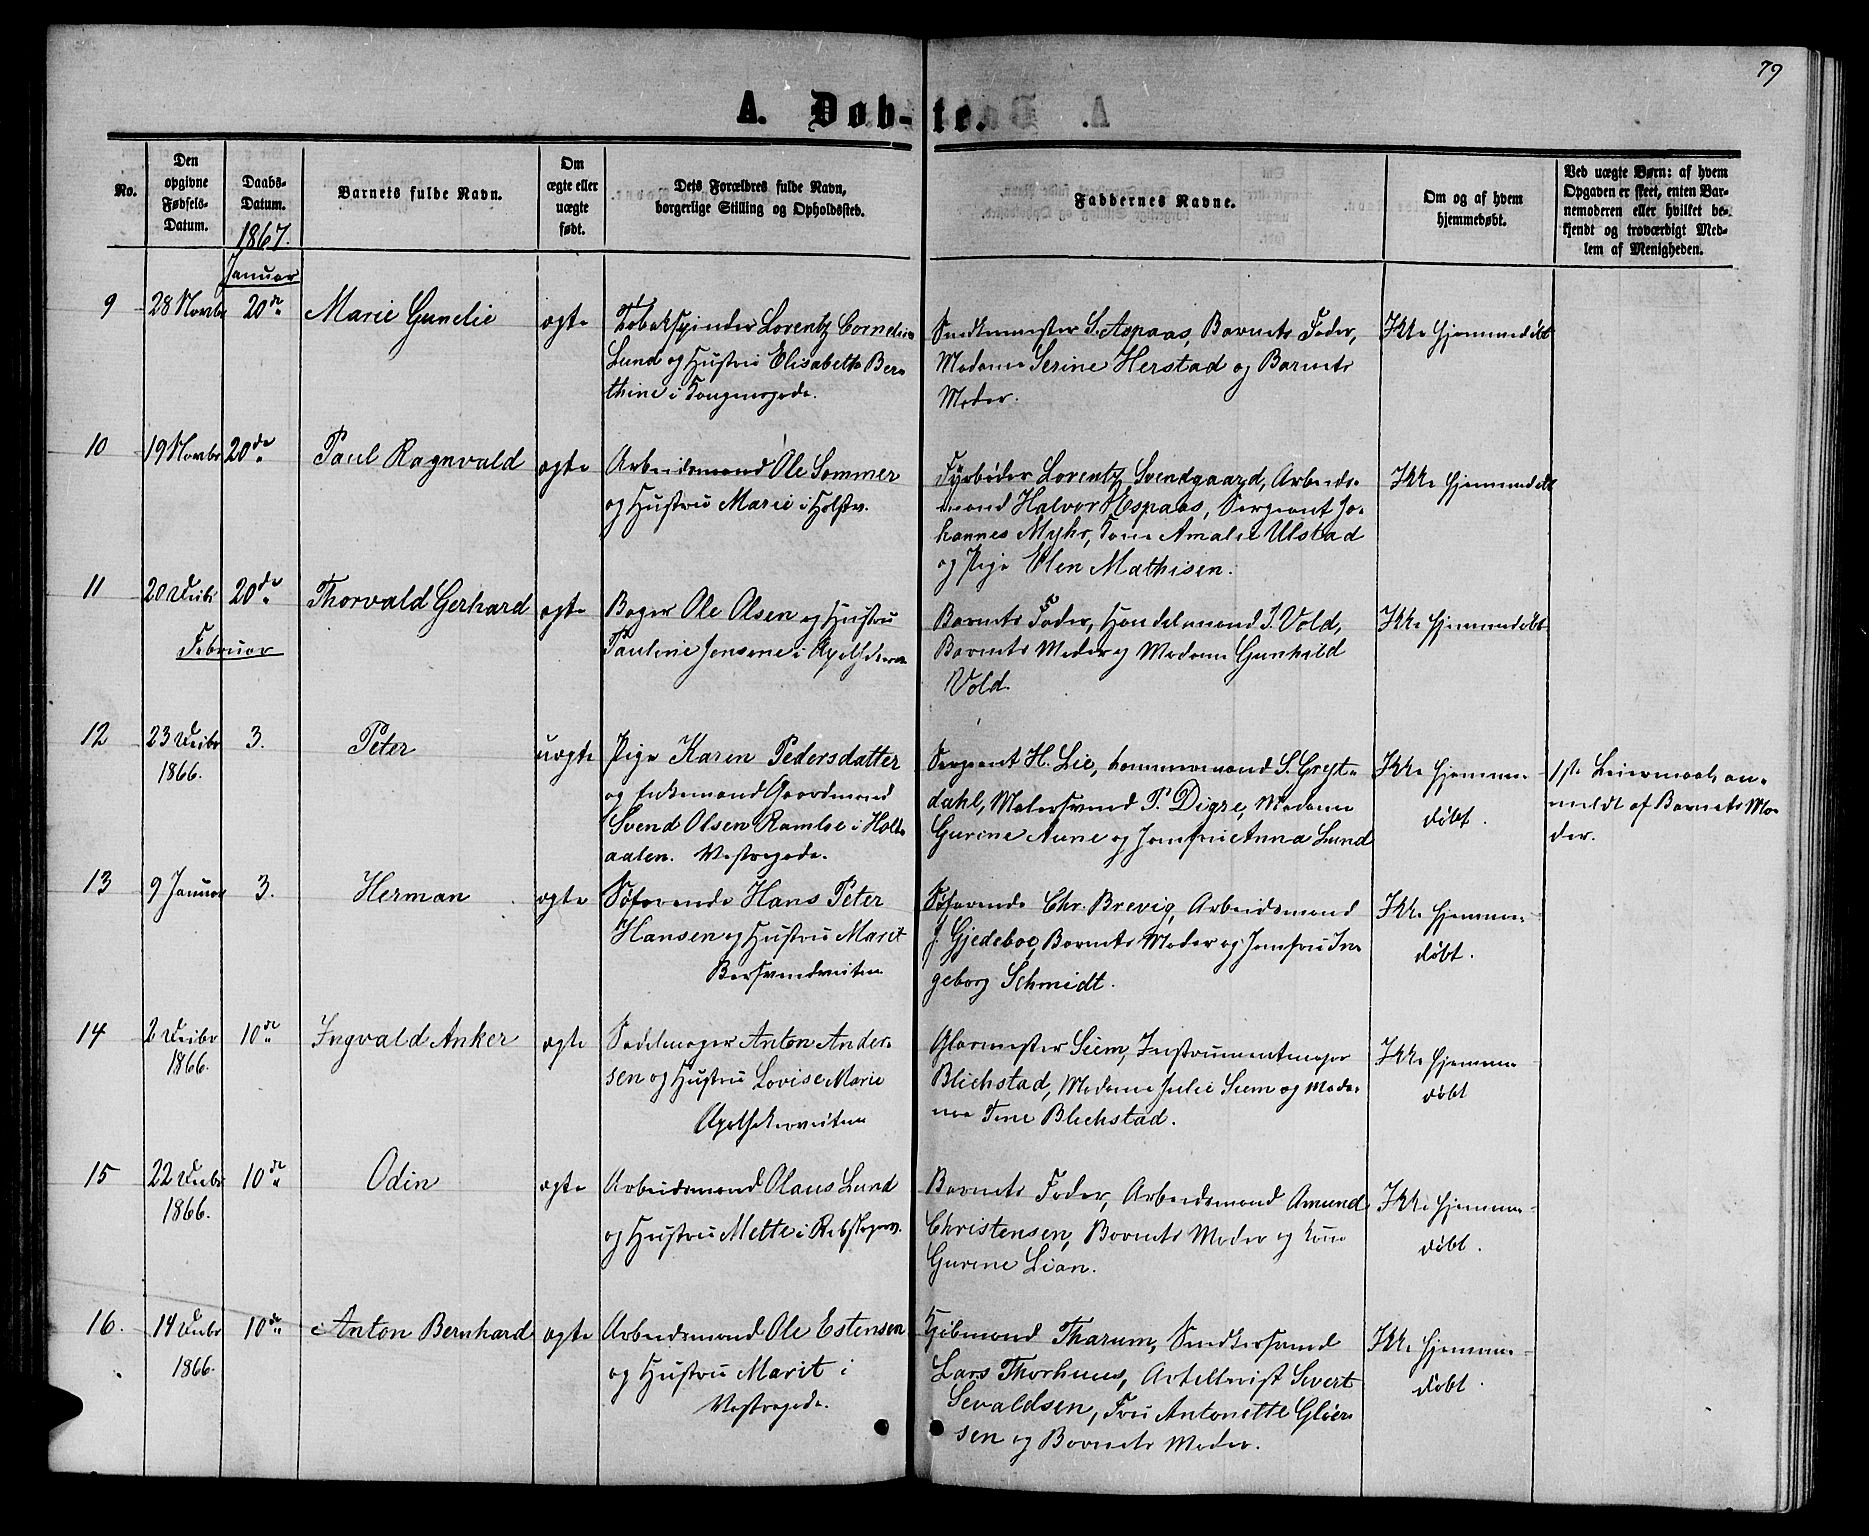 79
A. Døb-te.
No.
Den opgivne Fødsels-Datum.
Daabs-Datum.
Barnets fulde Navn.
Om ægte eller uægte født.
Dets Forældres fulde Navn, borgerlige Stilling og Opholdssted.
Faddernes Navne.
Om og af hvem hjemmedøbt.
Ved uægte Børn: af hvem Opgaven er skeet, enten Barnemoderen eller hvilket bekjendt og troværdigt Medlem af Menigheden.
1867.
Januar
9 28 Novbr 20de Marie Gunelie ægte
Tobakspinder Lorentz Cornelius
Lund og Hustru Elisabeth Ber-
thine i Kongensgade.
Snedkermester S. Aspaas, Barnets Fader,
Madame Serine Herstad og Barnets
Moder.
Ikke hjemmedøbt
10 19 Novbr 20de Paul Ragnvald ægte
Arbeidsmand Ole Sommer
og Hustru Marie i Holstv.
Fyrbøder Lorentz Svendgaard, Arbeids-
mand Halvor Espaas, Sergeant Jo-
hannes Myhr, Kone Amalie Ulstad
og Pige Elen Mathisen.
Ikke hjemmedøbt
11 20 Decbr 20de Thorvald Gerhard ægte
Bager Ole Olsen og Hustru
Pauline Jensene i
Barnets Fader, Handelsmand I. Vold,
Barnets Moder og Madame Gunhild
Vold.
Ikke hjemmedøbt
Februar
12 23 Decbr 3. Peter uægte
1866.
Pige Karen Pedersdatter
og Enkemand Gaardmand
Svend Olsen Ramloe i Holt-
aalen. Vestregade.
Sergeant H. Lie, Kammermand S. Grøt-
dahl, Malersvend P. Digre, Madame
Gurine Aune og Jomfru Anna Lund
Ikke hjemme-
døbt.
1ste Leiermaal, an-
meldt af Barnets Mo-
der.
13 9 Januar 3. Herman ægte
Søfarende Hans Peter
Hansen og Hustru Marit
Bersvendveiten
Søfarende Chr. Brevig, Arbeidsmand
J. Gjedeboe, Barnets Moder og Jomfru In-
geborg Schmidt.
Ikke hjemme-
døbt.
14 2 Decbr 10de Ingvald Anker ægte
1866.
Sadelmager Anton Ander-
sen og Hustru Lovise Marie
Apothekerveiten
Glarmester Siem, Instrumentmager
Blichstad, Madame Julie Siem og Mada-
me Tine Blichstad.
Ikke hjemme-
døbt
15 22 Decbr 10de Odin ægte
1866.
Arbeidsmand Olaus Lund
og Hustru Mette i Rebslagerv.
Barnets Fader, Arbeidsmand Amund
Christensen, Barnets Moder og Kone
Gurine Lian.
Ikke hjemme-
døbt.
16. 14 Decbr 10de Anton Bernhard ægte
1866.
Arbeidsmand Ole Estensen
og Hustru Marit i
Vestregade.
Kjøbmand Tharum, Snedkersvend
Lars Thorhuus, Artellerist Sivert
Sevaldsen, Fru Antonette Gløer-
sen og Barnets Moder.
Ikke hjemme-
døbt.